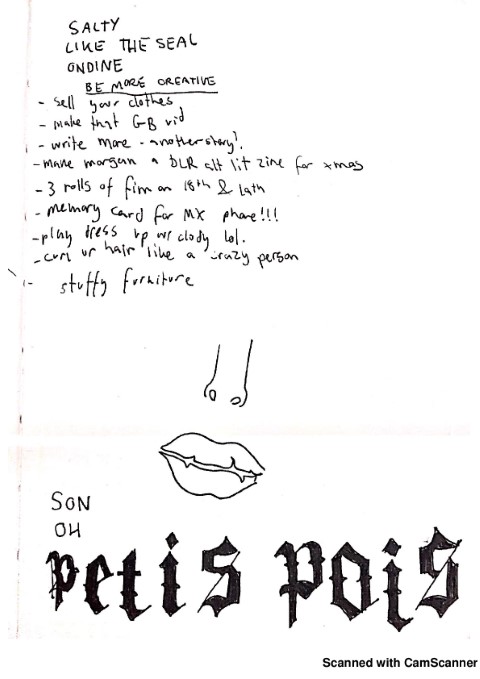 SALTY
LIKE THE SEAL
ONDINE
BE MORE CREATIVE
- sell your clothes
- make that GB vid
- write more - another story?
- make morgan a DLR alt lit zine for xmas
- 3 rolls of fim on 18th & Lath
- memory card for MX phone!!!
- play dress up w/ clody lol.
- curl ur hair like a crazy person
- stuffy furniture
SON
OH
petis pois
Scanned with CamScanner